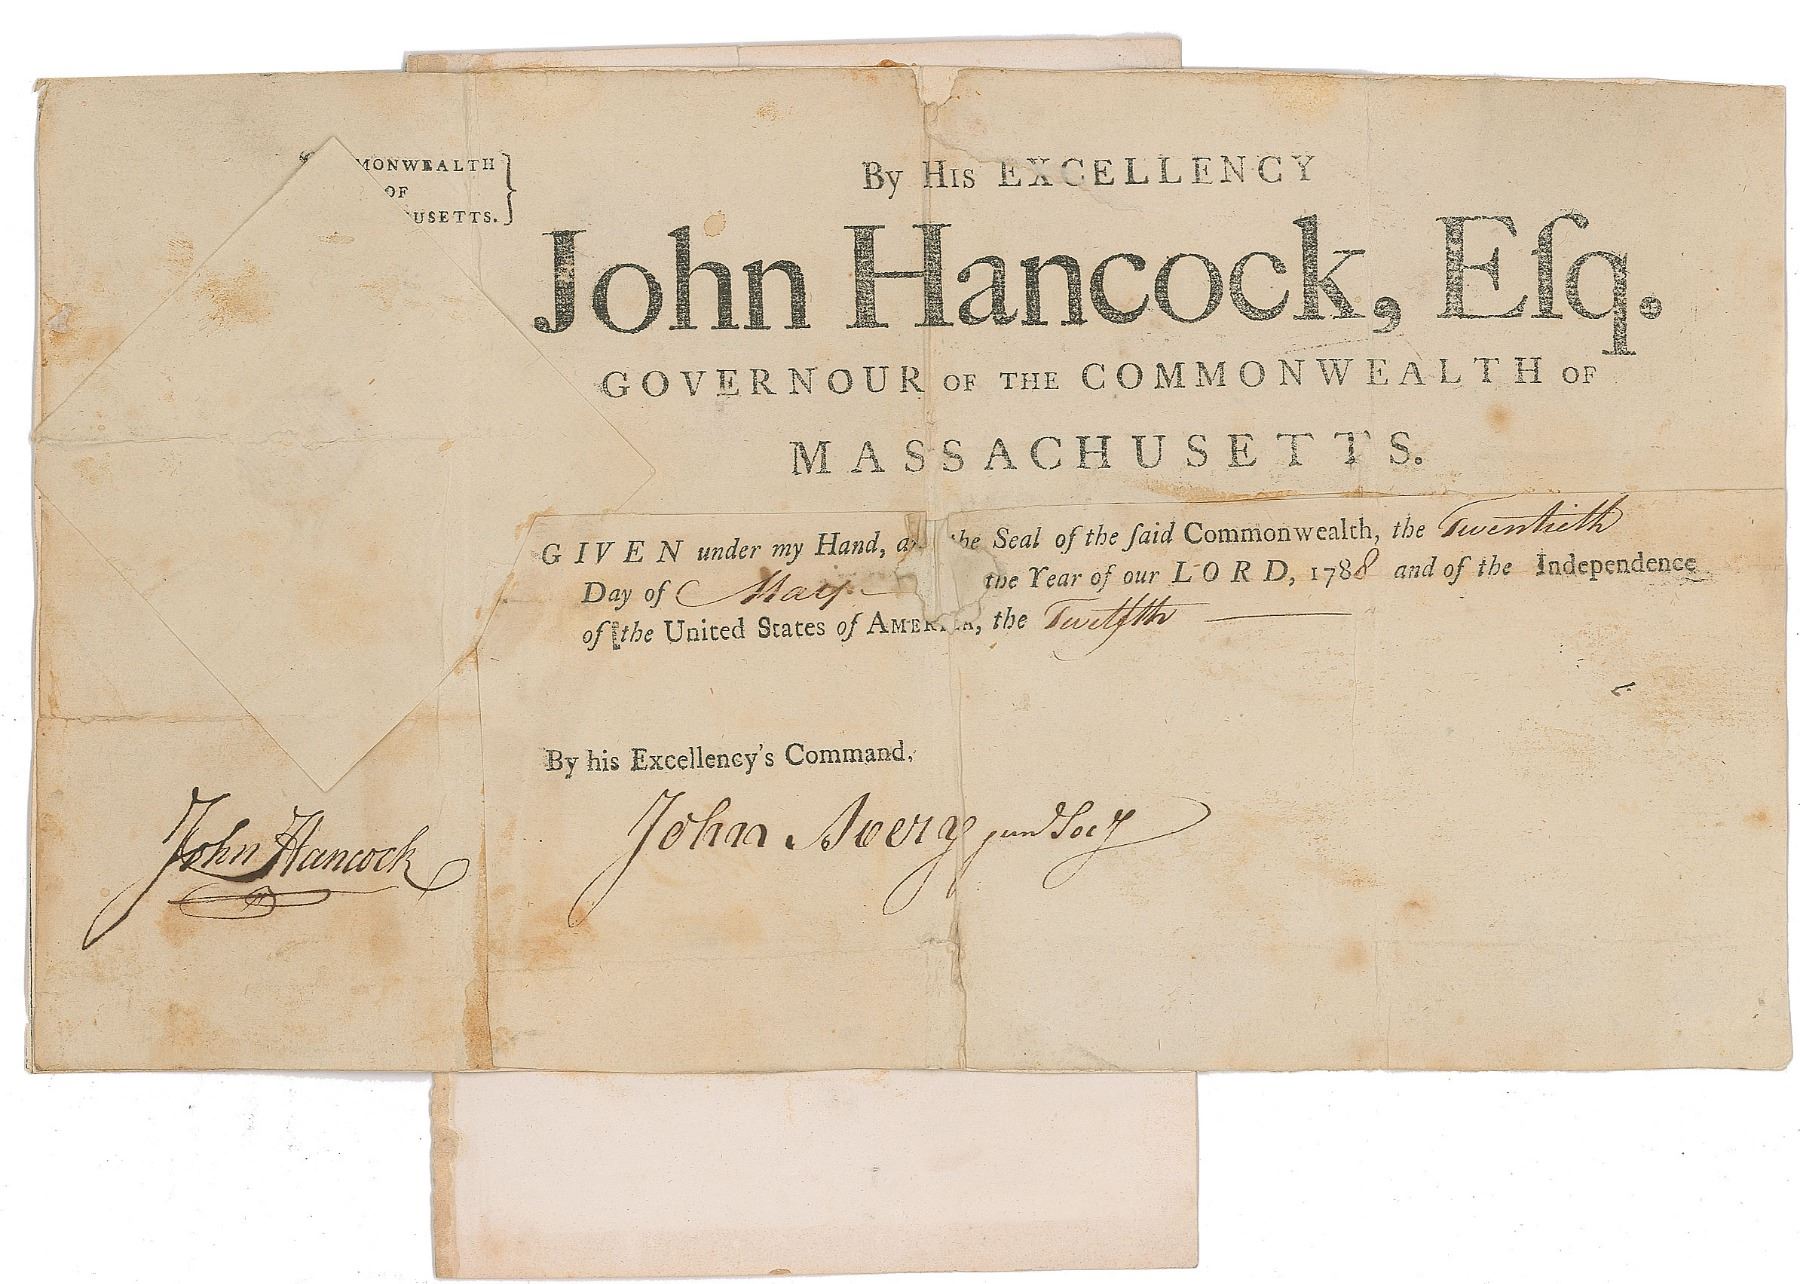 MONWEALTH
OF
USETTS.
By His EXCELLENCY
John Hancock, Eſq.
GOVERNOUR OF THE COMMONWEALTH OF
MASSACHUSETTS.
GIVEN under my Hand, a the Seal of the ſaid Commonwealth, the Twentieth
Day of May the Year of our LORD, 1788 and of the Independence
of the United States of AMERICA, the Twelfth
By his Excellency's Command,
John Hancock
John Avery junr Secy